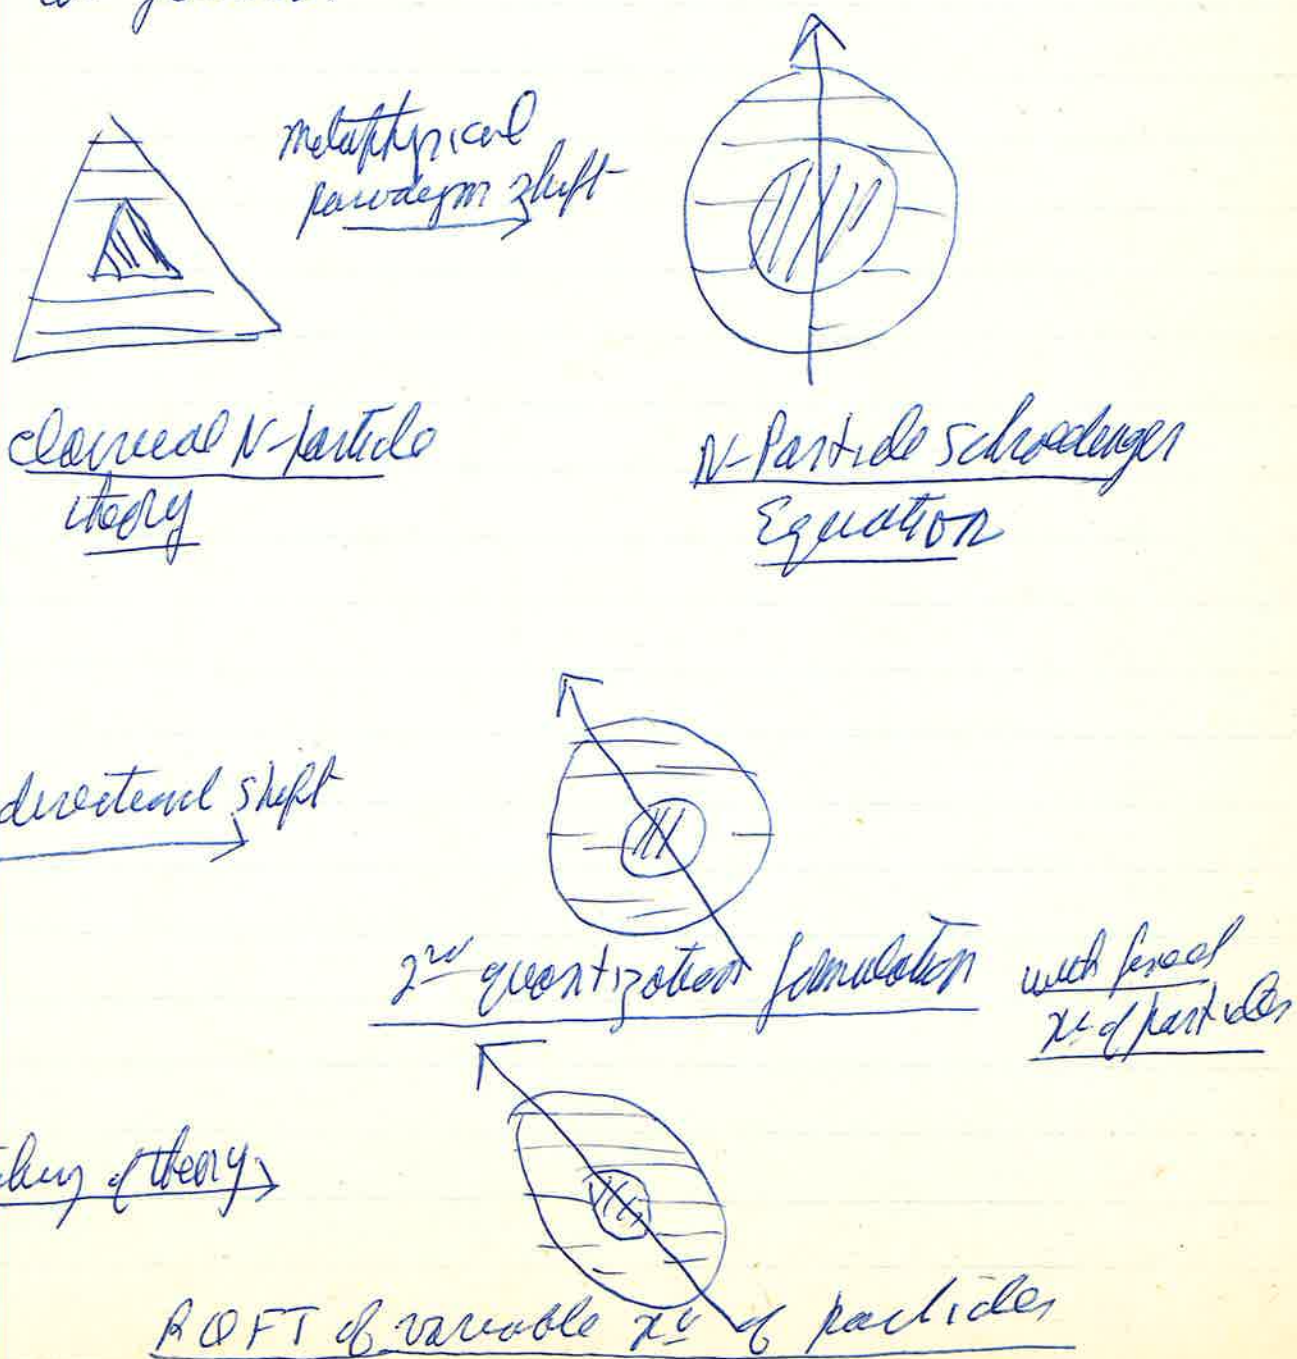 metaphysical
paradigm shift
classical N-particle
theory
N-Particle Schroedinger
Equation
directional shift
2nd quantization formulation with fixed
no of particles
of theory
RQFT of variable no of particles